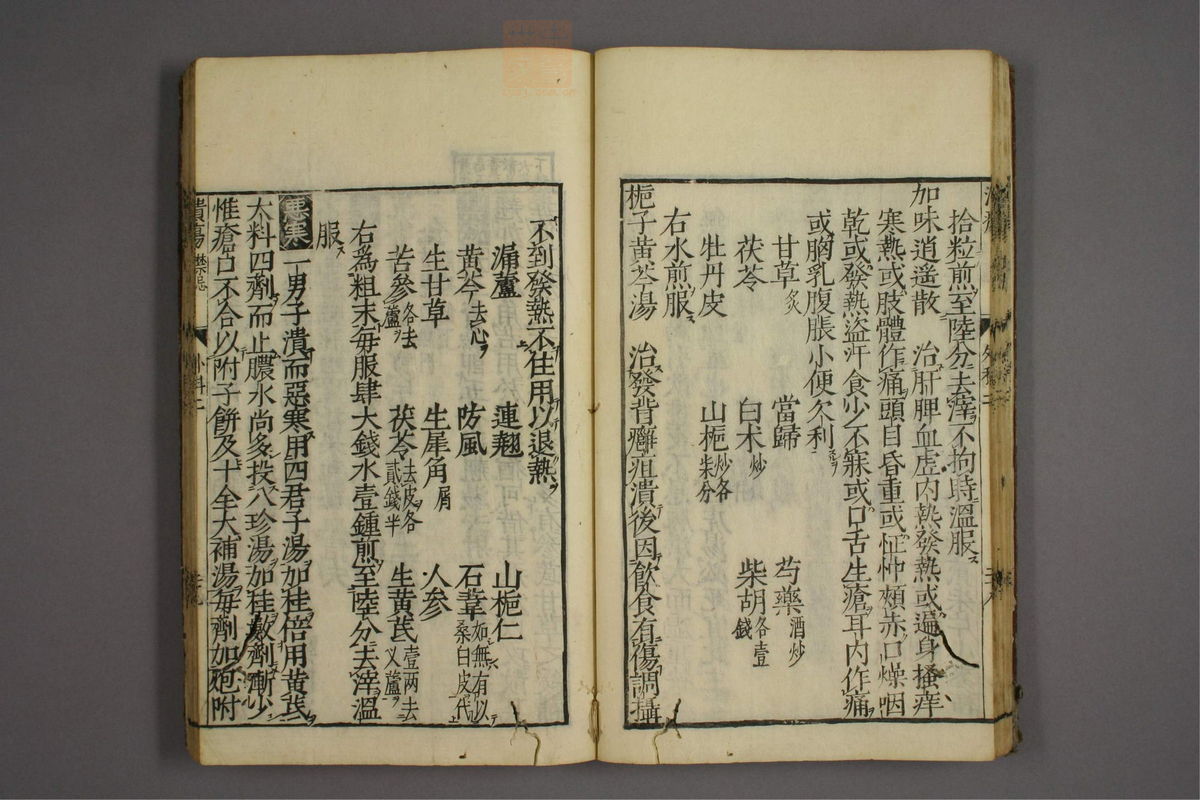 拾粒煎至陸分去滓不拘時溫服
加味逍遙散　治肝脾血虛内熱發熱或遍身搔痒
寒熱或肢體作痛頭目昏重或怔忡頰赤口燥咽
乾或發熱盜汗食少不寐或口舌生瘡耳内作痛
或胸乳腹脹小便欠利
甘草炙　當歸　芍藥酒炒
茯苓　白术炒　柴胡各壹錢
牡丹皮　山梔炒各柒分
右水煎服
梔子黃芩湯　治發背癰疽潰後因飲食有傷調攝
不到發熱不住用以退熱
漏蘆　連翹　山梔仁
黃芩去心　防風　石韋如無有以桑白皮代
生甘草　生犀角屑　人参
苦參各去蘆　茯苓去皮各貳錢半　生黃芪壹兩去乂蘆
右爲粗末每服肆大錢水壹鍾煎至陸分去滓溫
服
惡寒 一男子潰而惡寒用四君子湯加桂倍用黃芪
大料四劑而止膿水尚多投八珍湯加桂數劑漸少
惟瘡口不合以附子餅及十全大補湯每劑加炮附
潰瘍 禁忌 外科二